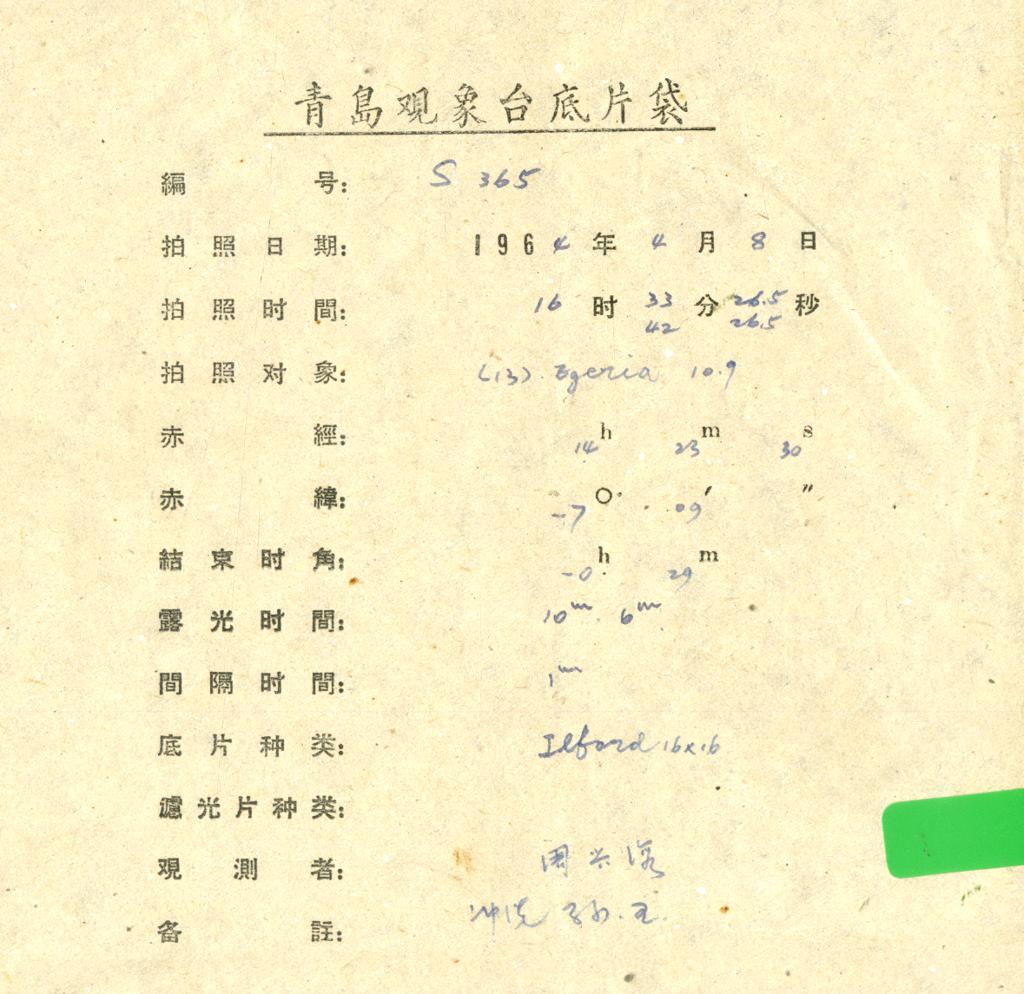 青島观象台底片袋
編号: S 365
拍照日期: 1964年4月8日
拍照时間: 16时33分26.5秒
42 26.5
拍照对象: (13) Egeria 10.9
赤經: 14h 23m 30s
赤緯: -7° 09′ ″
結束时角: -0h 29m
露光时間: 10m. 6m
間隔时間: 1m
底片种类: Ilford 16x16
濾光片种类:
观測者: 周兴
备註: 冲洗 孙.王.